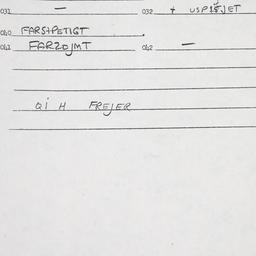 031 — 032 + USPIŠJET
060 FARSIPETIGT
061 FARZOJMT 062 —
QI H FREJER